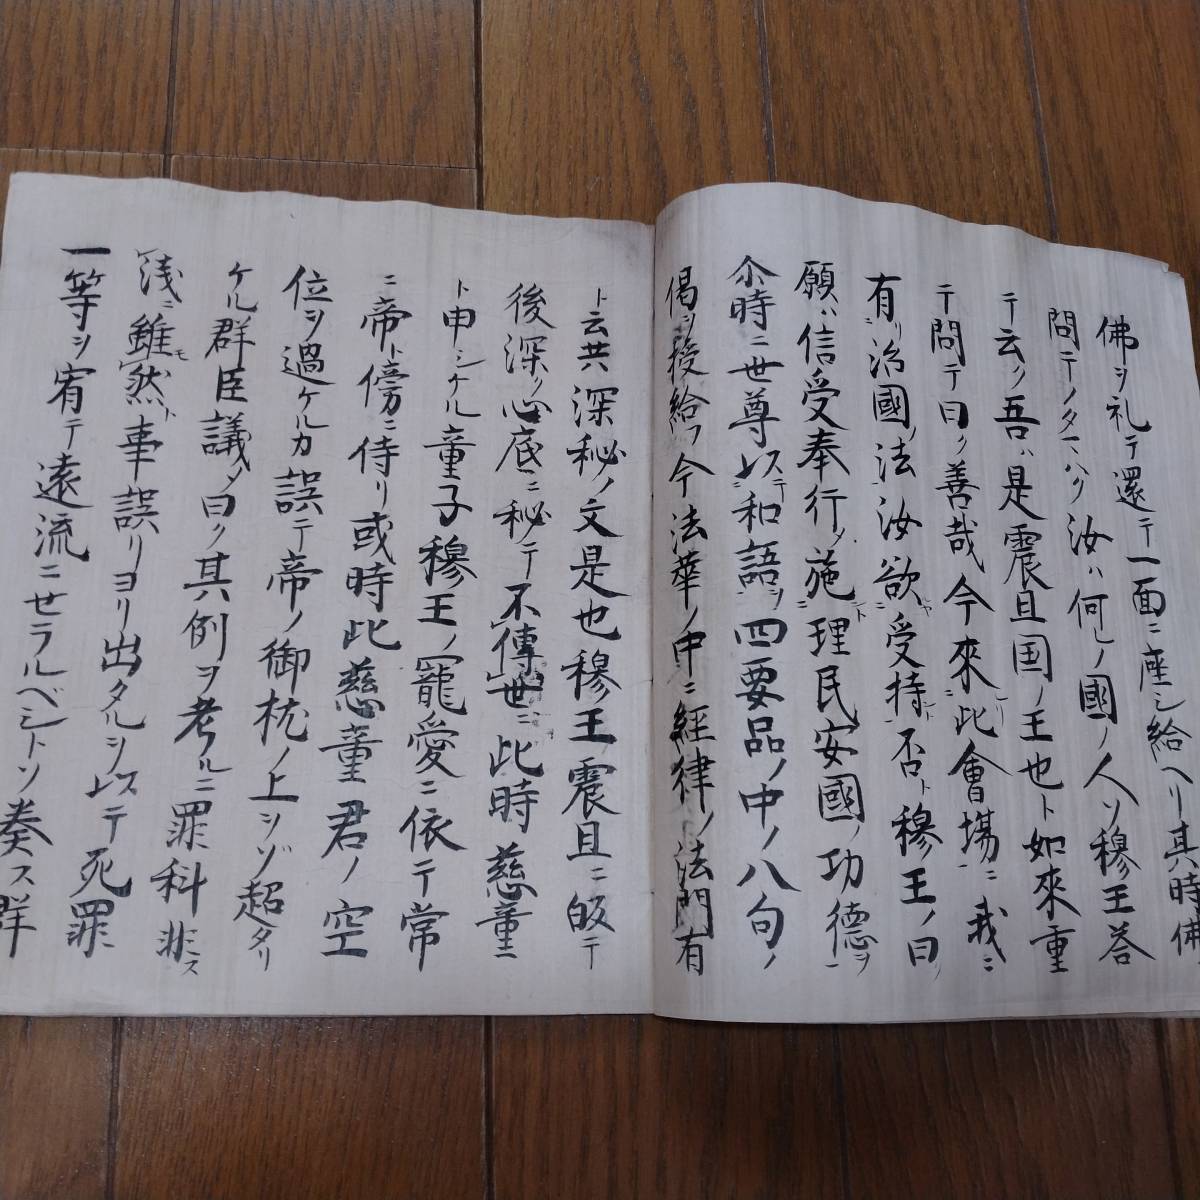 佛ヲ礼テ還テ一面ニ座シ給ヘリ其時佛
問テノタマハク汝ハ何レノ國ノ人ソ穆王答
テ云ク吾ハ是震旦国ノ王也ト如來重
テ問テ曰ク善哉今來此會場ニ我ニ
有リ治國ノ法汝欲受持否ト穆王ノ曰
願ハ信受奉行シ施理民安國ノ功德ヲ
尒時ニ世尊以テ和語ヲ四要品ノ中ノ八句ノ
偈ヲ授給フ今法華ノ中ニ經律ノ法門有
ト云共深秘ノ文是也穆王震旦ニ皈テ
後深ク心底ニ秘テ不傳世ニ此時慈童ニ
ト申シケル童子穆王ノ寵愛ニ依テ常
ニ帝ト傍ニ侍リ或時此慈童君ノ空
位ヲ過ケルカ誤テ帝ノ御枕ノ上ヲゾ超タリ
ケル群臣議メ曰ク其例ヲ考ルニ罪科非ス
浅ニ雖モ然ト事誤リヨリ出タルヲ以テ死罪
一等ヲ宥テ遠流ニセラルベシトソ奏ス群